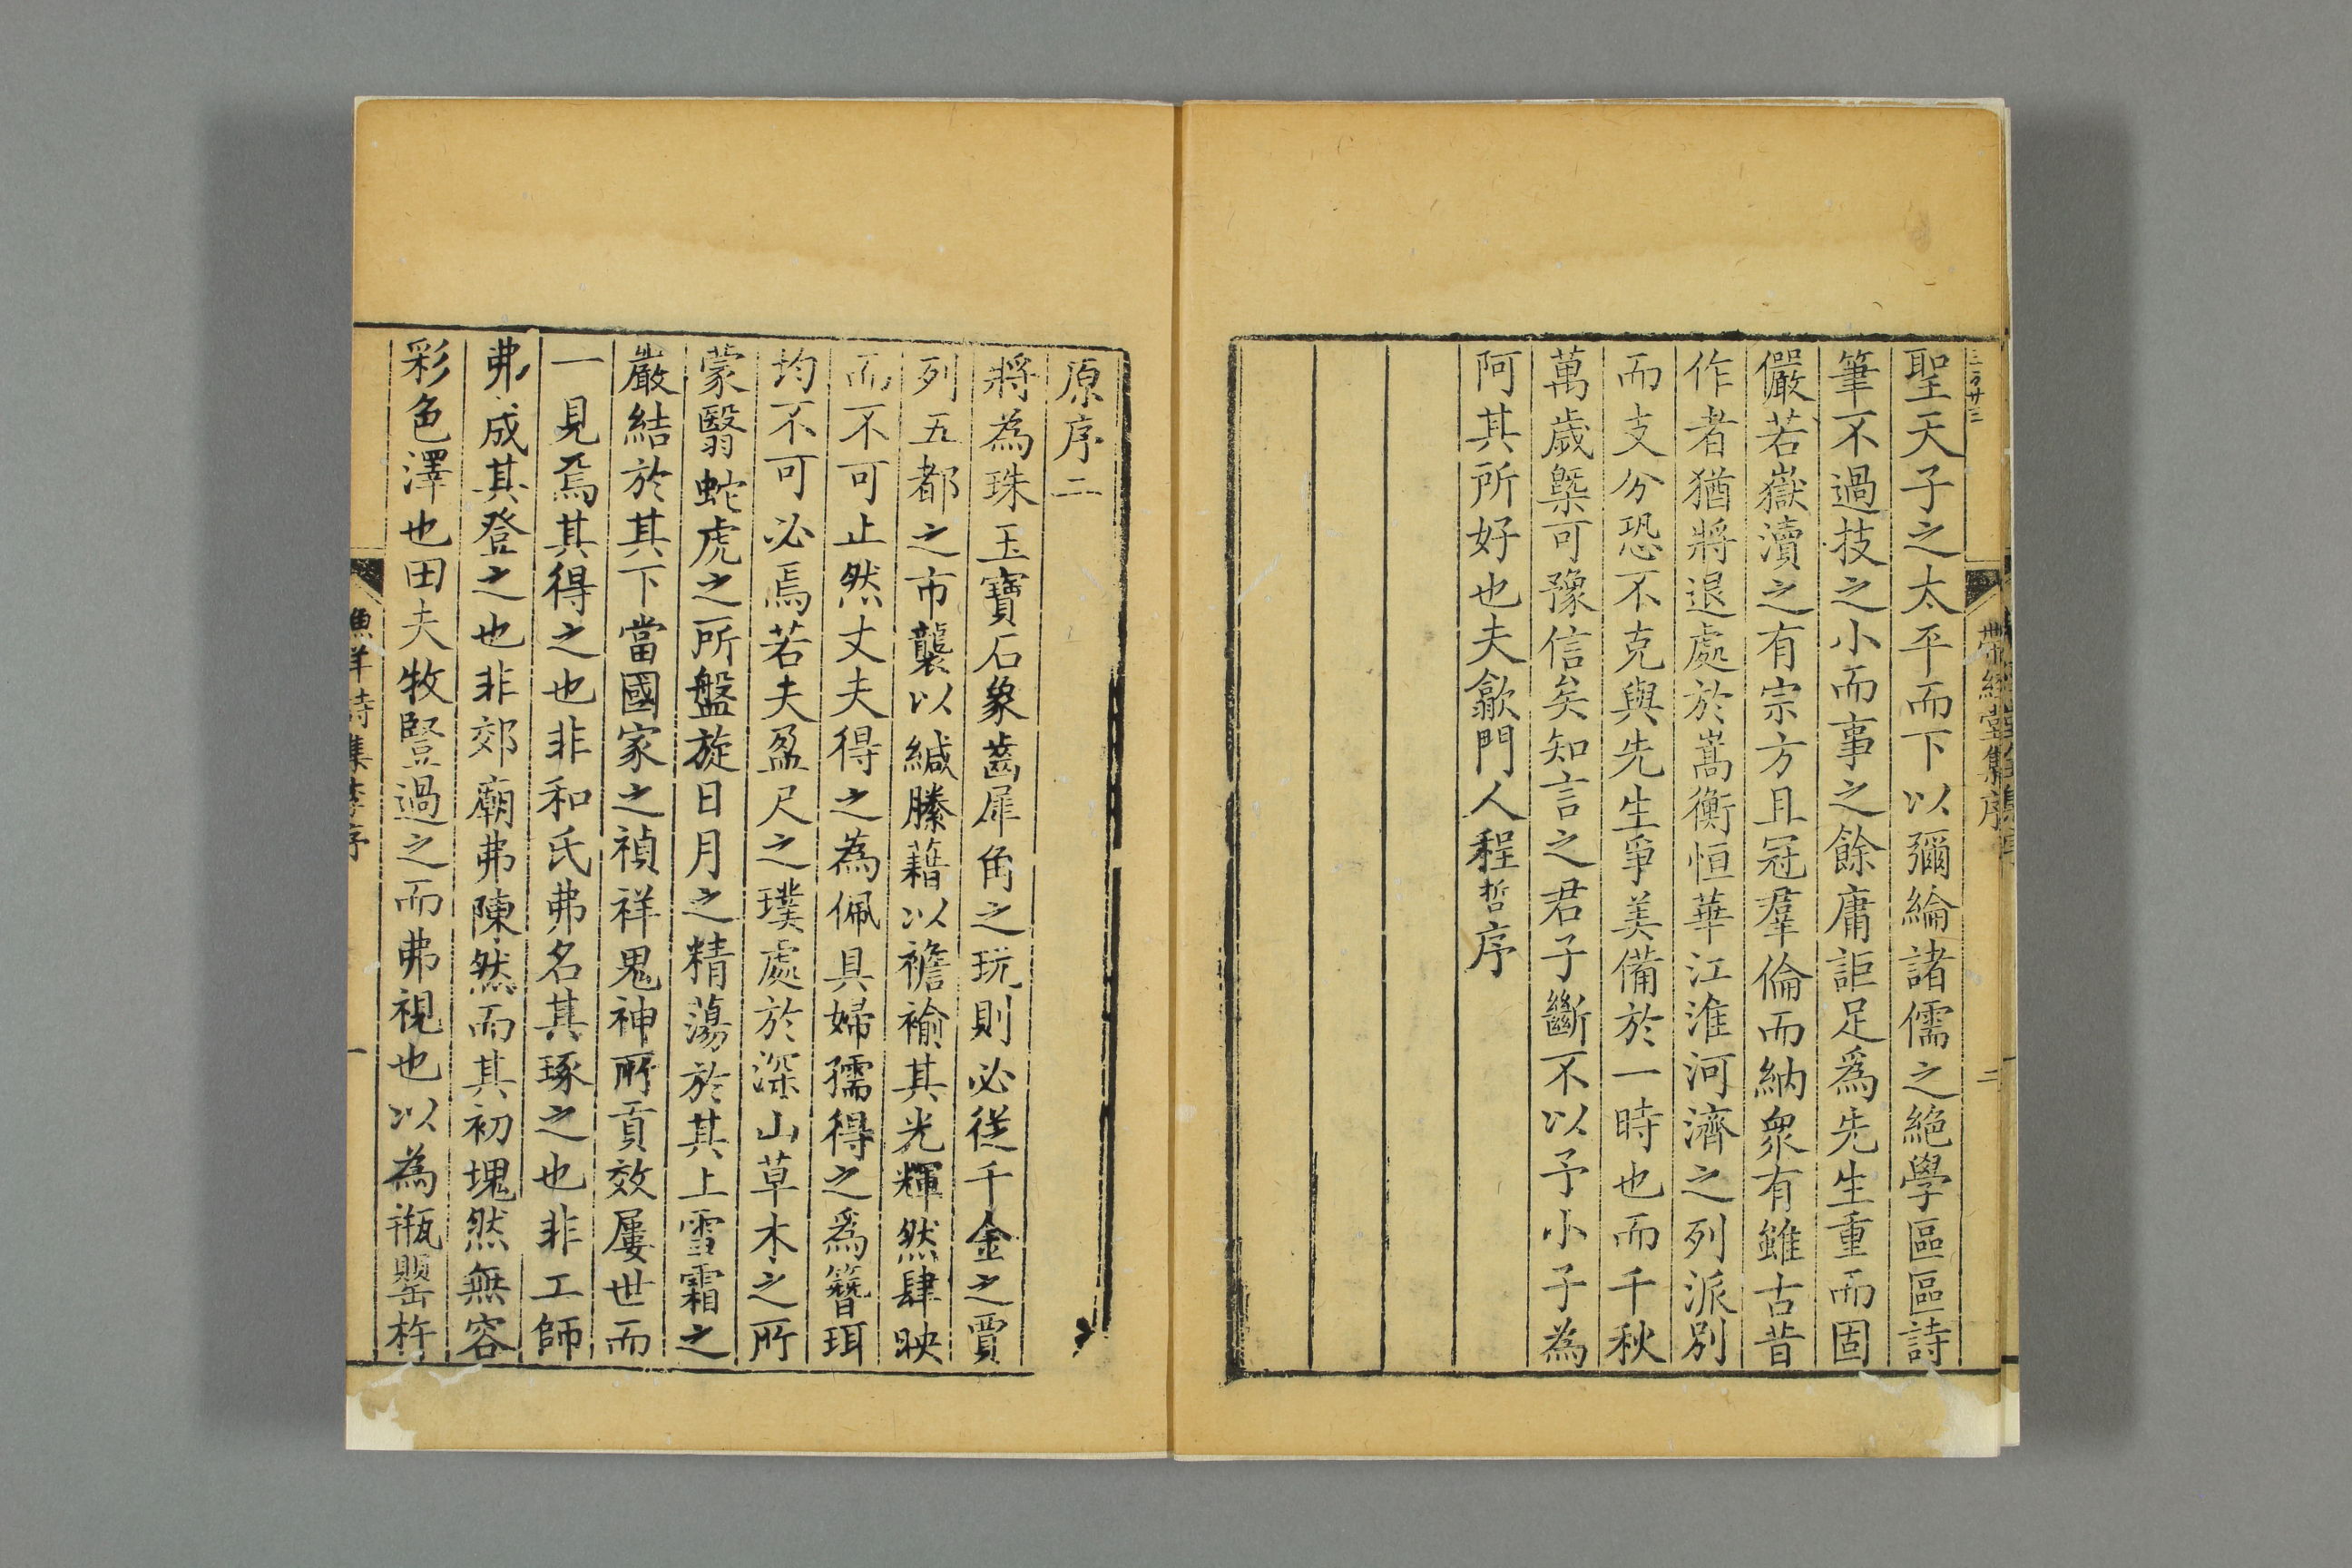 聖天子之太平而下以彌綸諸儒之絶學區區詩
筆不過技之小而事之餘庸詎足爲先生重而固
儼若嶽瀆之有宗方且冠羣倫而納衆有雖古昔
作者猶將退處於嵩衡恒華江淮河濟之列派別
而支分恐不克與先生爭美備於一時也而千秋
萬歲槩可豫信矣知言之君子斷不以予小子為
阿其所好也夫歙門人程哲序
帶經堂集序
二
原序二
將為珠玉寶石象齒犀角之玩則必從千金之賈
列五都之市襲以緘縢藉以襜褕其光輝然肆映
而不可止然丈夫得之為佩具婦孺得之爲簪珥
均不可必焉若夫盈尺之璞處於深山草木之所
蒙翳蛇虎之所盤旋日月之精蕩於其上雪霜之
嚴結於其下當國家之禎祥鬼神所貢效屢世而
一見焉其得之也非和氏弗名其琢之也非工師
弗成其登之也非郊廟弗陳然而其初塊然無容
彩色澤也田夫牧豎過之而弗視也以為瓶罌杵
漁洋詩集李序
一